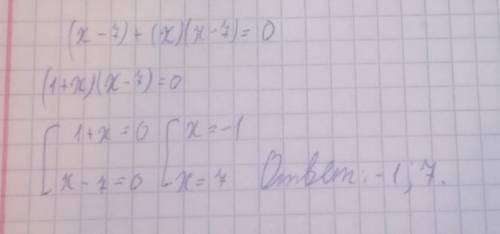 (x-7)+(x)(x-7)=0
(1+x)(x-7)=0
[1+x=0 [x=-1
x-7=0 x=7 Ответ: -1; 7.